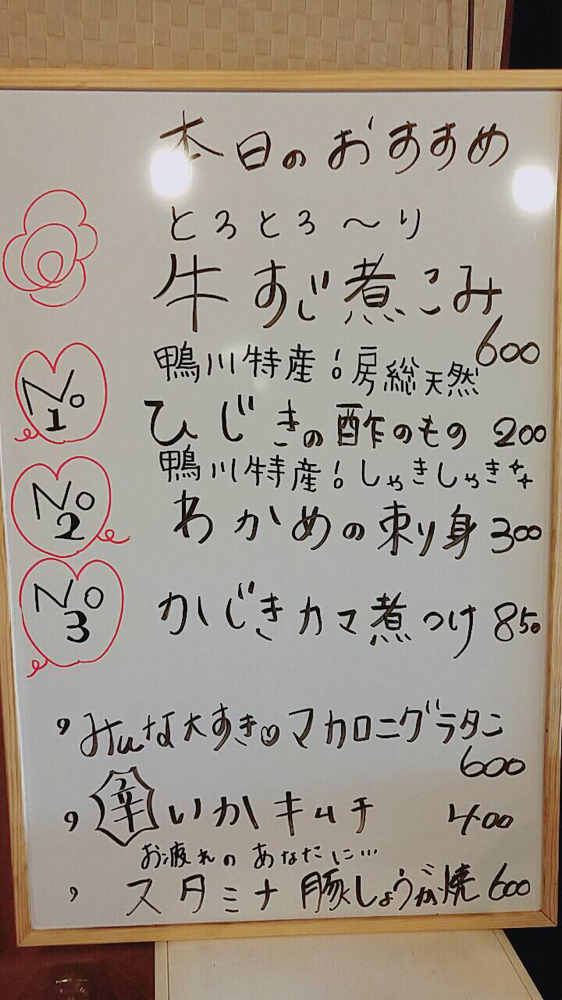 本日のおすすめ
とろとろ〜り
牛すじ煮こみ
600
No 1
鴨川特産!房総天然
ひじきの酢のもの 200
No 2
鴨川特産!しゃきしゃき
わかめの刺り身 300
No 3
かじきカマ煮つけ 850
みんな大すき♡マカロニグラタン
600
辛いかキムチ 400
お疲れのあなたに…
スタミナ豚しょうが焼 600